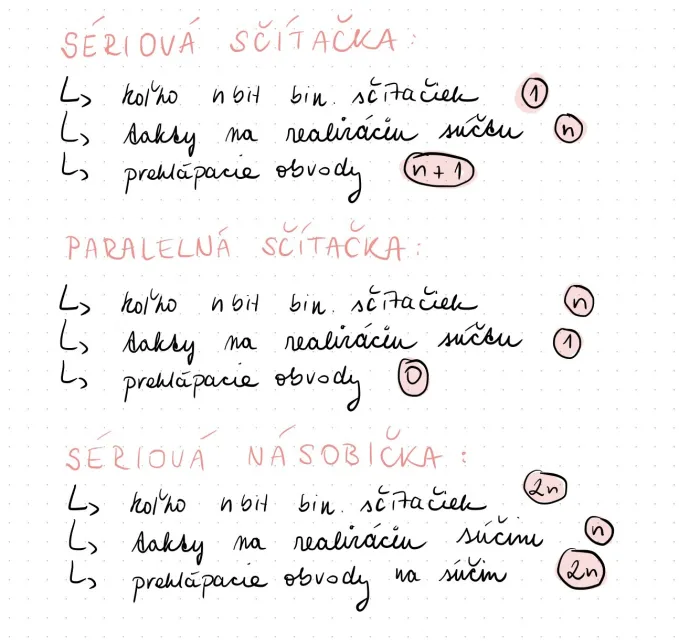 SÉRIOVÁ SČÍTAČKA:
↳ koľko nbit bin. sčítačiek 1
↳ takty na realizáciu súčtu n
↳ preklápacie obvody n+1
PARALELNÁ SČÍTAČKA:
↳ koľko nbit bin. sčítačiek n
↳ takty na realizáciu súčtu 1
↳ preklápacie obvody 0
SÉRIOVÁ NÁSOBIČKA:
↳ koľko nbit bin. sčítačiek 2n
↳ takty na realizáciu súčinu n
↳ preklápacie obvody na súčin 2n